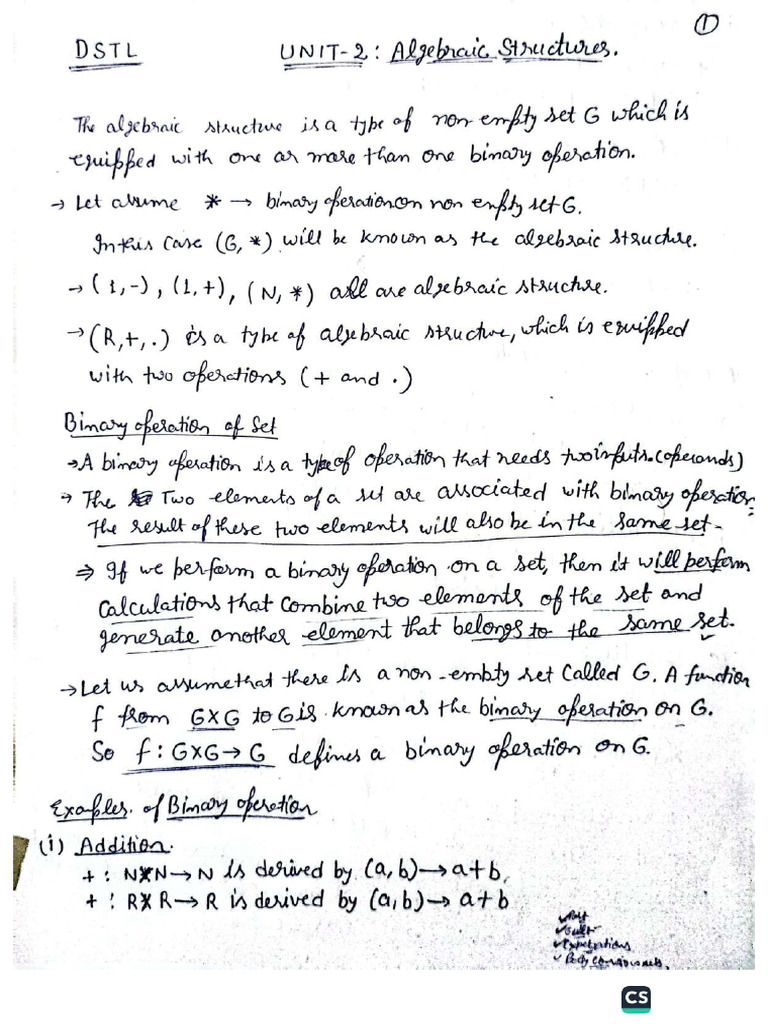 1
DSTL UNIT-2: Algebraic Structures.
The algebraic structure is a type of non empty set G which is
equipped with one or more than one binary operation.
→ Let assume * → binary operation on non empty set G.
In this case (G, *) will be known as the algebraic structure.
→ (1,-), (1,+), (N, *) all are algebraic structure.
→ (R,+,.) is a type of algebraic structure, which is equipped
with two operations (+ and .)
Binary operation of Set
→ A binary operation is a type of operation that needs two inputs. (operands)
→ The Two elements of a set are associated with binary operation.
The result of these two elements will also be in the same set-
⇒ If we perform a binary operation on a set, then it will perform
calculations that combine two elements of the set and
generate another element that belongs to the same set.
→ Let us assume that there is a non-empty set called G. A function
f from G×G to G is known as the binary operation on G.
So f : G×G → G defines a binary operation on G.
Examples. of Binary operation
(i) Addition.
+ : N×N → N is derived by (a, b) → a+b,
+ : R×R → R is derived by (a, b) → a+b
Expectations
CS